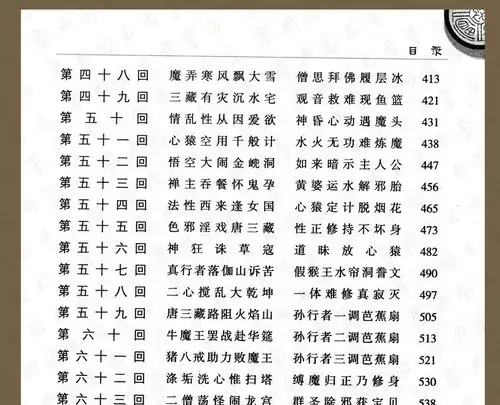 目录
第四十八回 魔弄寒风飘大雪 僧思拜佛履层冰 413
第四十九回 三藏有灾沉水宅 观音救难现鱼篮 421
第五十回 情乱性从因爱欲 神昏心动遇魔头 431
第五十一回 心猿空用千般计 水火无功难炼魔 438
第五十二回 悟空大闹金𡺎洞 如来暗示主人公 447
第五十三回 禅主吞餐怀鬼孕 黄婆运水解邪胎 456
第五十四回 法性西来逢女国 心猿定计脱烟花 465
第五十五回 色邪淫戏唐三藏 性正修持不坏身 473
第五十六回 神狂诛草寇 道昧放心猿 482
第五十七回 真行者落伽山诉苦 假猴王水帘洞誊文 490
第五十八回 二心搅乱大乾坤 一体难修真寂灭 497
第五十九回 唐三藏路阻火焰山 孙行者一调芭蕉扇 505
第六十回 牛魔王罢战赴华筵 孙行者二调芭蕉扇 513
第六十一回 猪八戒助力败魔王 孙行者三调芭蕉扇 521
第六十二回 涤垢洗心惟扫塔 缚魔归正乃修身 530
第六十三回 二僧荡怪闹龙宫 群圣除邪获宝贝 538